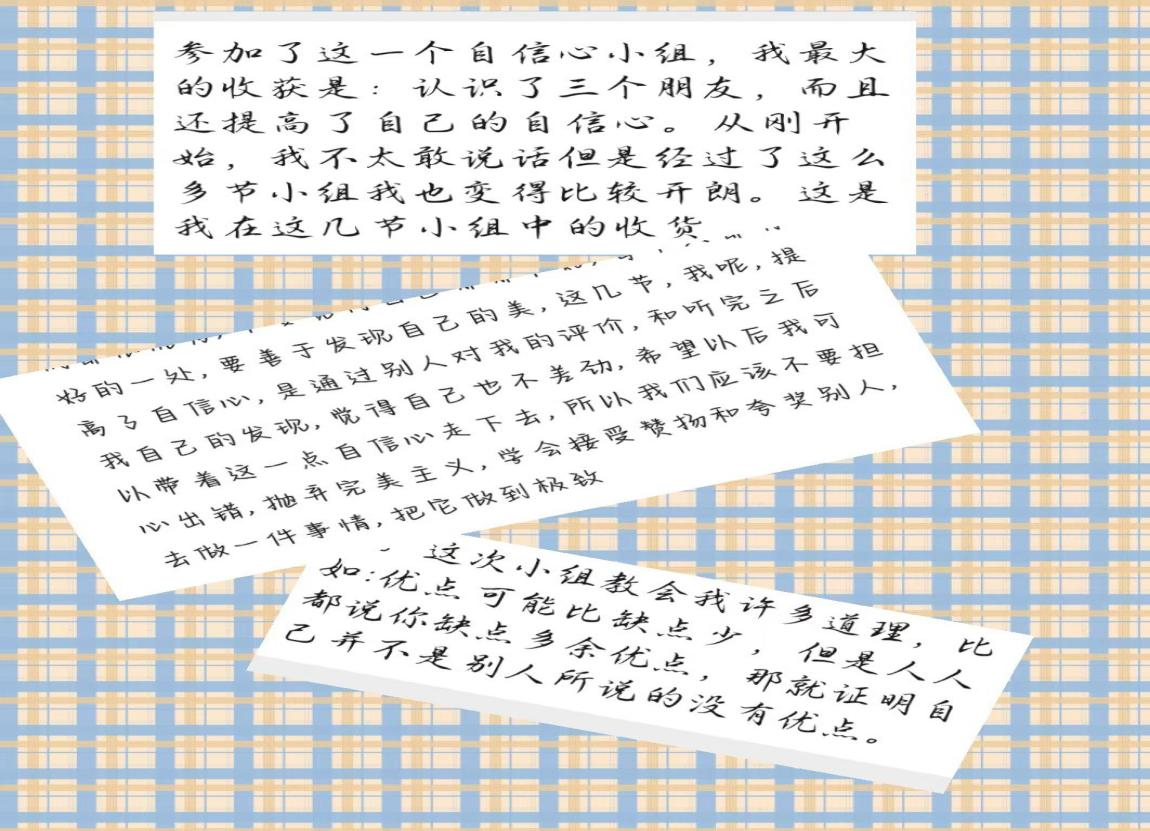 参加了这一个自信心小组，我最大
的收获是：认识了三个朋友，而且
还提高了自己的自信心。从刚开
始，我不太敢说话但是经过了这么
多节小组我也变得比较开朗。这是
我在这几节小组中的收货
好的一处，要善于发现自己的美，这几节，我呢，提
高了自信心，是通过别人对我的评价，和听完之后
我自己的发现，觉得自己也不差劲，希望以后我可
以带着这一点自信心走下去，所以我们应该不要担
心出错，抛弃完美主义，学会接受赞扬和夸奖别人，
去做一件事情，把它做到极致
这次小组教会我许多道理，比
如：优点可能比缺点少，但是人人
都说你缺点多余优点，那就证明自
己并不是别人所说的没有优点。